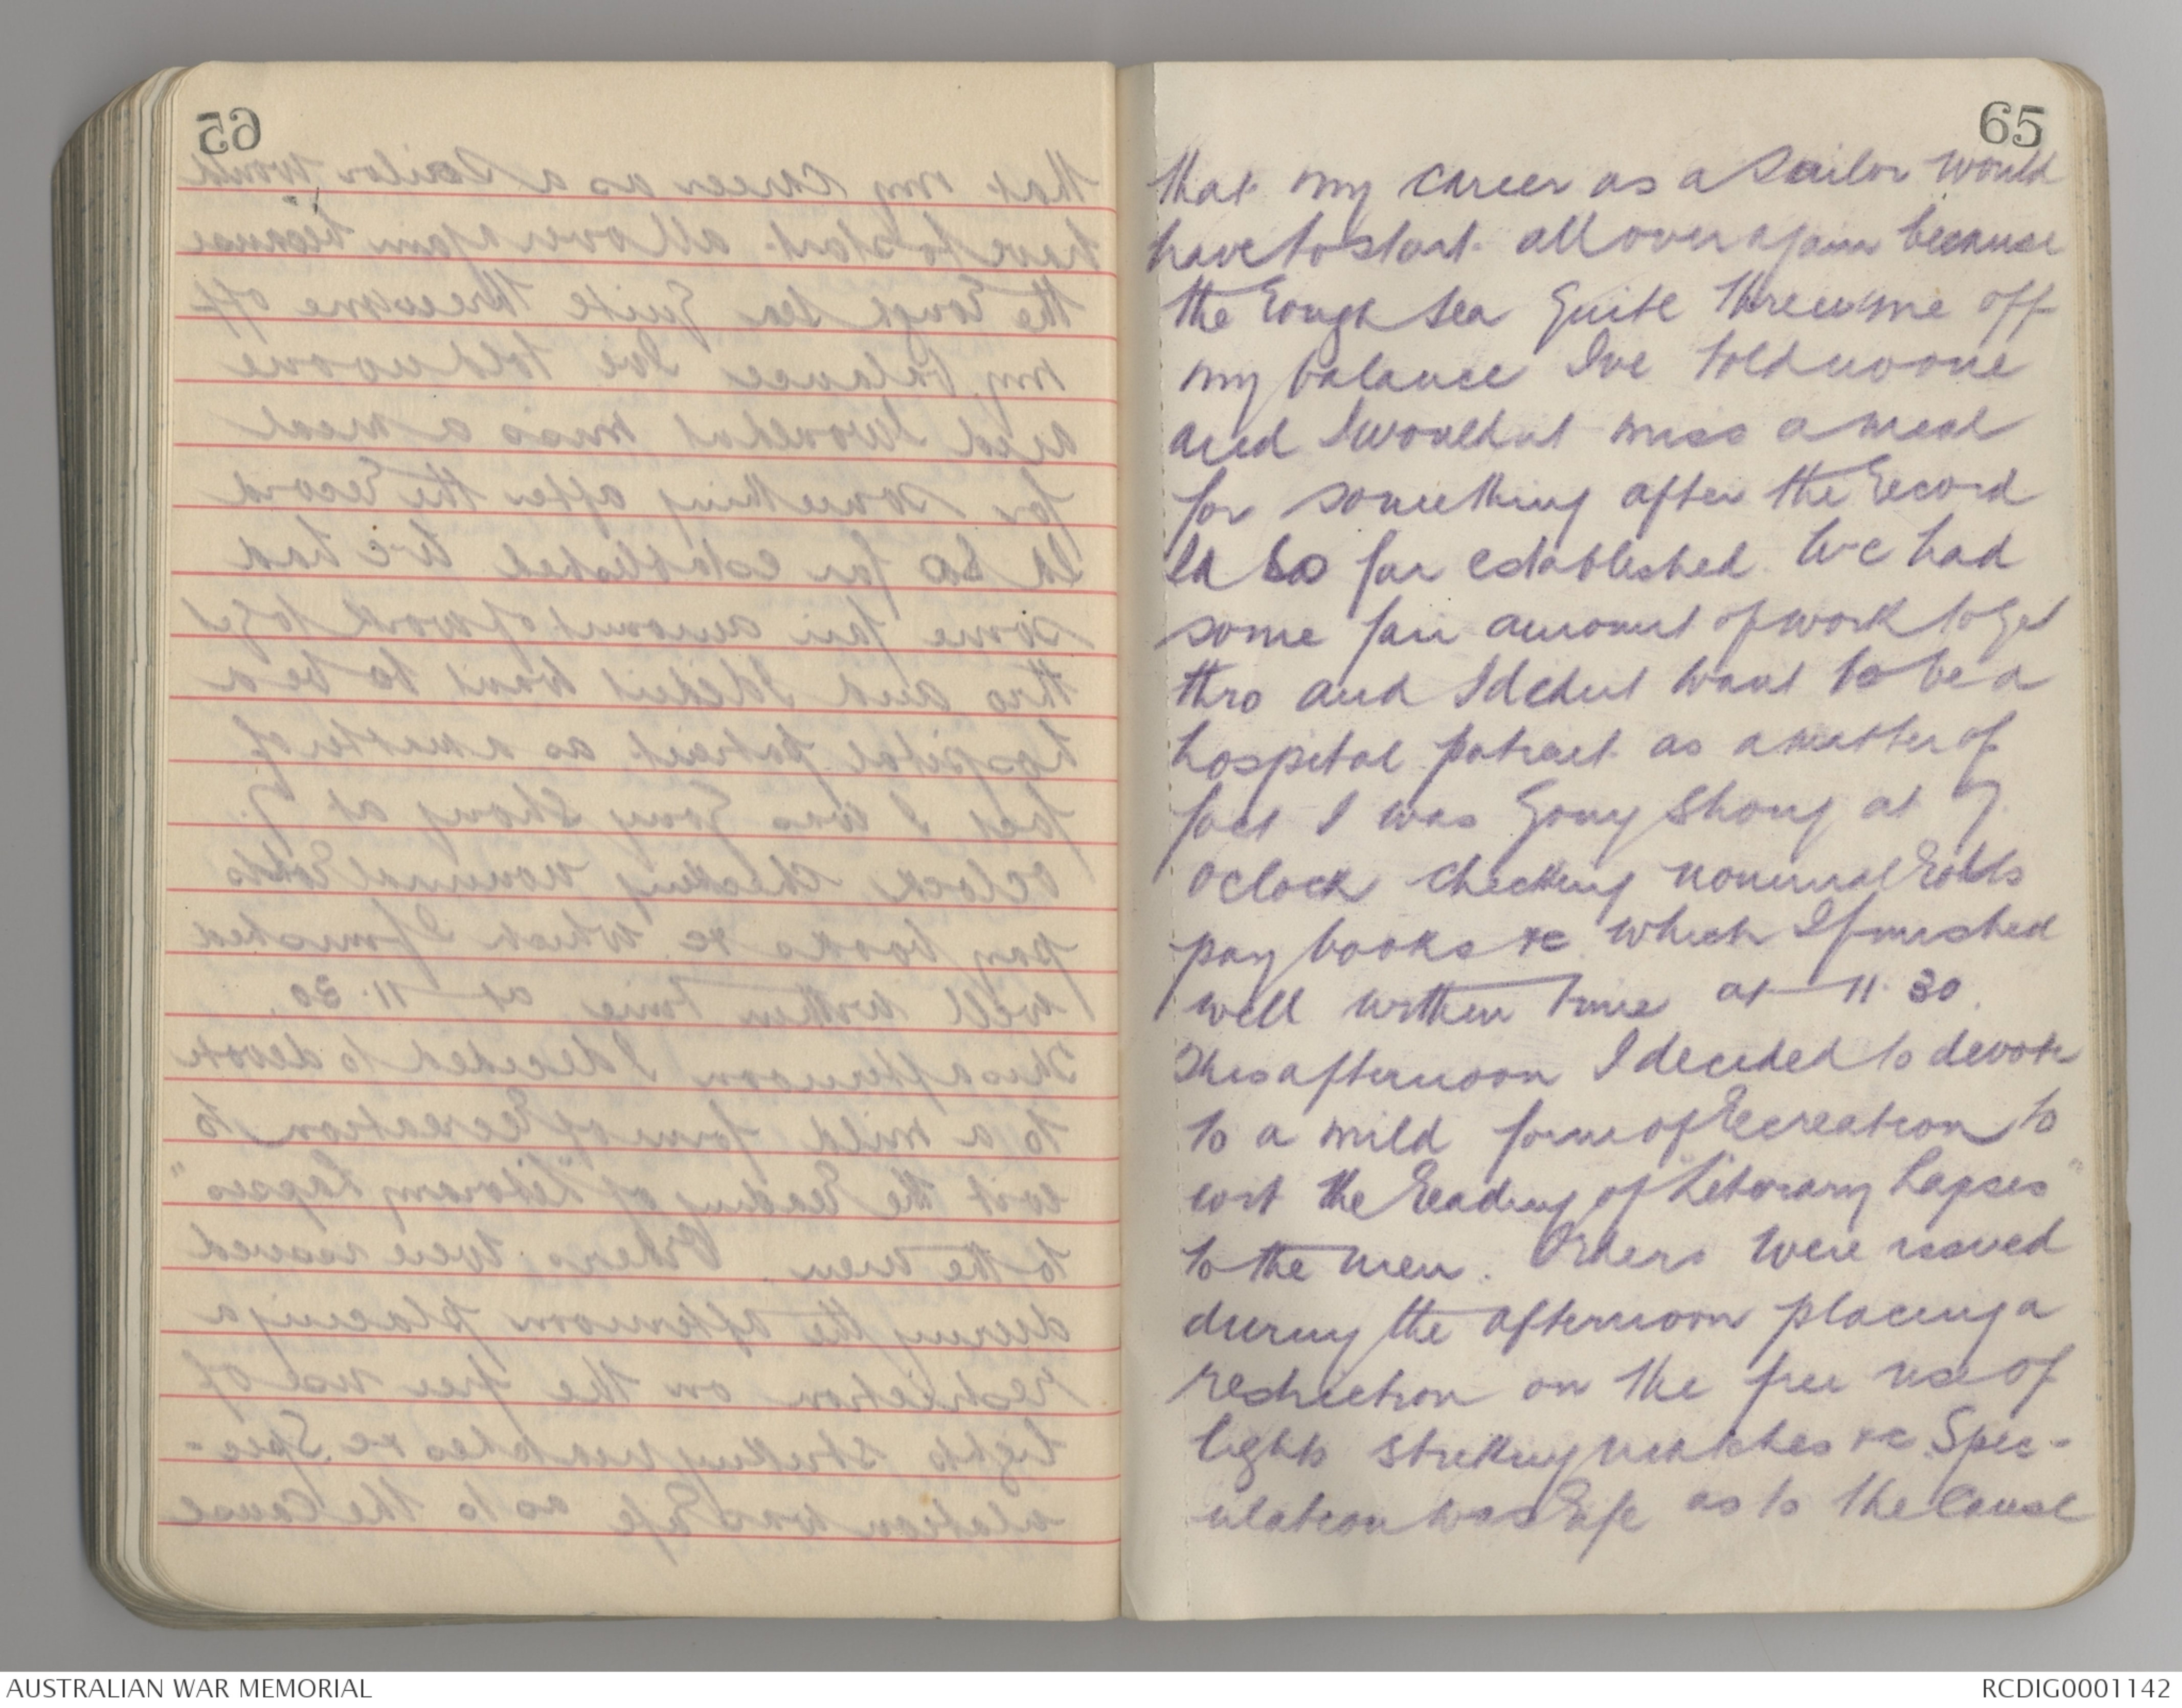 65
that my career as a sailor would
have to start all over again because
the rough sea quite threw me off
my balance I've told no one
and I wouldnt miss a meal
for something after the record
Id so far established. We had
some fair amount of work to get
thro and I didnt want to be a
hospital patient as a matter of
fact I was going strong at 7.
oclock checking nominal rolls
pay books &c which I finished
well within time at 11.30.
This afternoon I decided to devote
to a mild form of recreation to
wit the reading of "Literary Lapses"
to the men. Orders were issued
during the afternoon placing a
restriction on the free use of
lights striking matches &c Spec-
ulation was rife as to the cause
AUSTRALIAN WAR MEMORIAL
RCDIG0001142